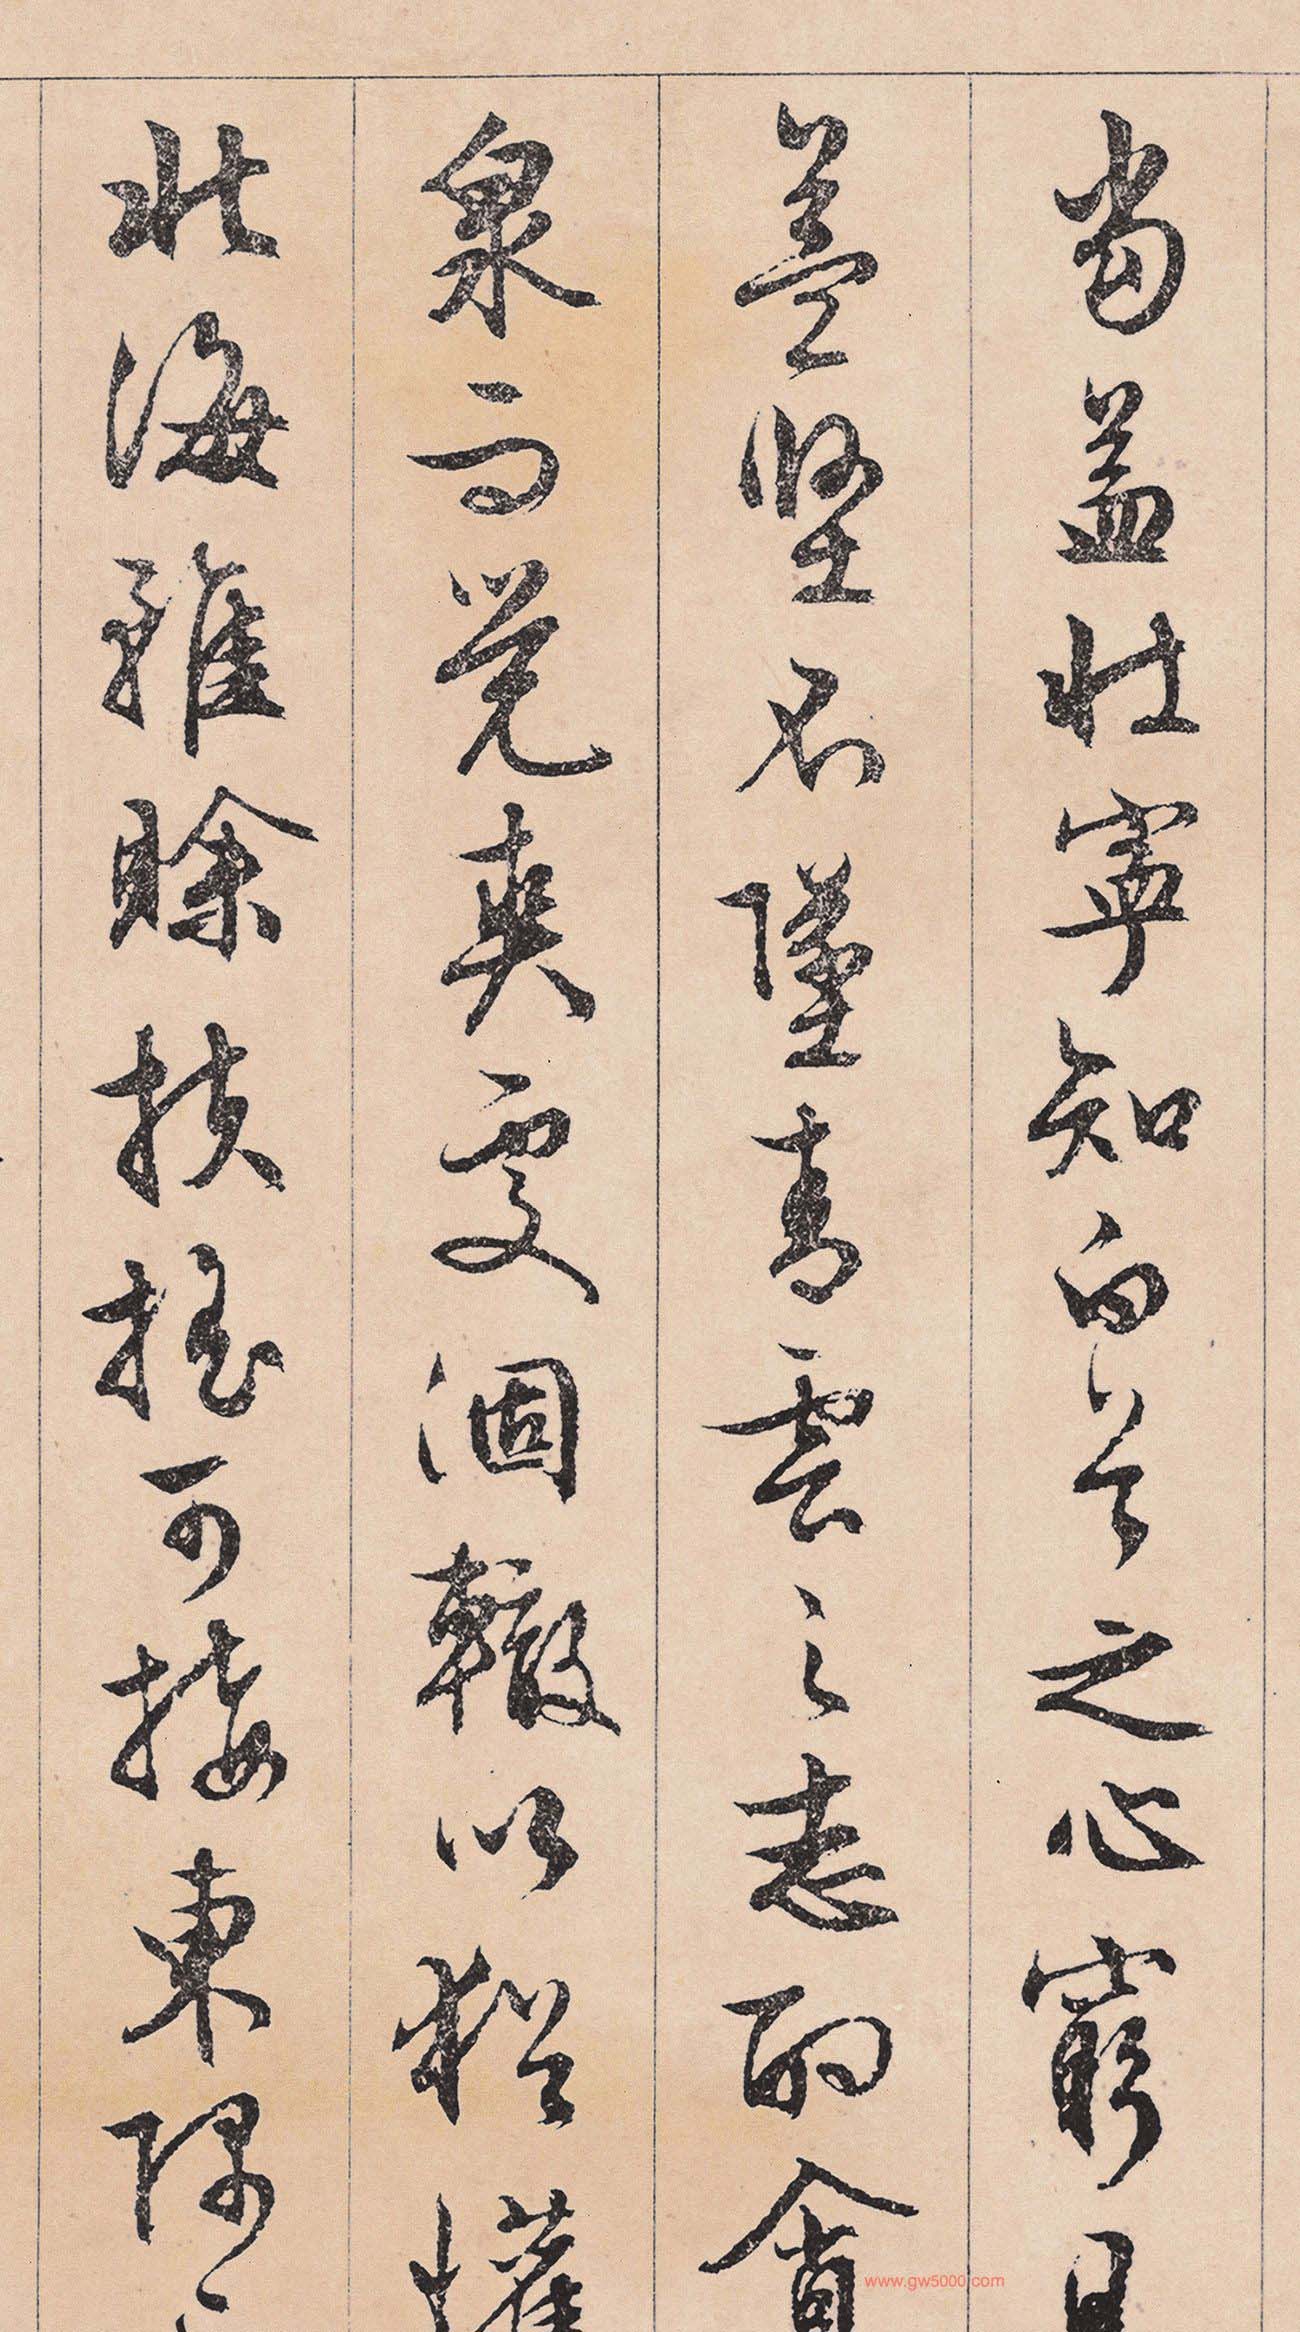 當益壯寧知白首之心窮且
益堅不墜青雲之志酌貪
泉而覺爽處涸轍以猶懽
北海雖賒扶搖可接東隅已
www.gw5000.com